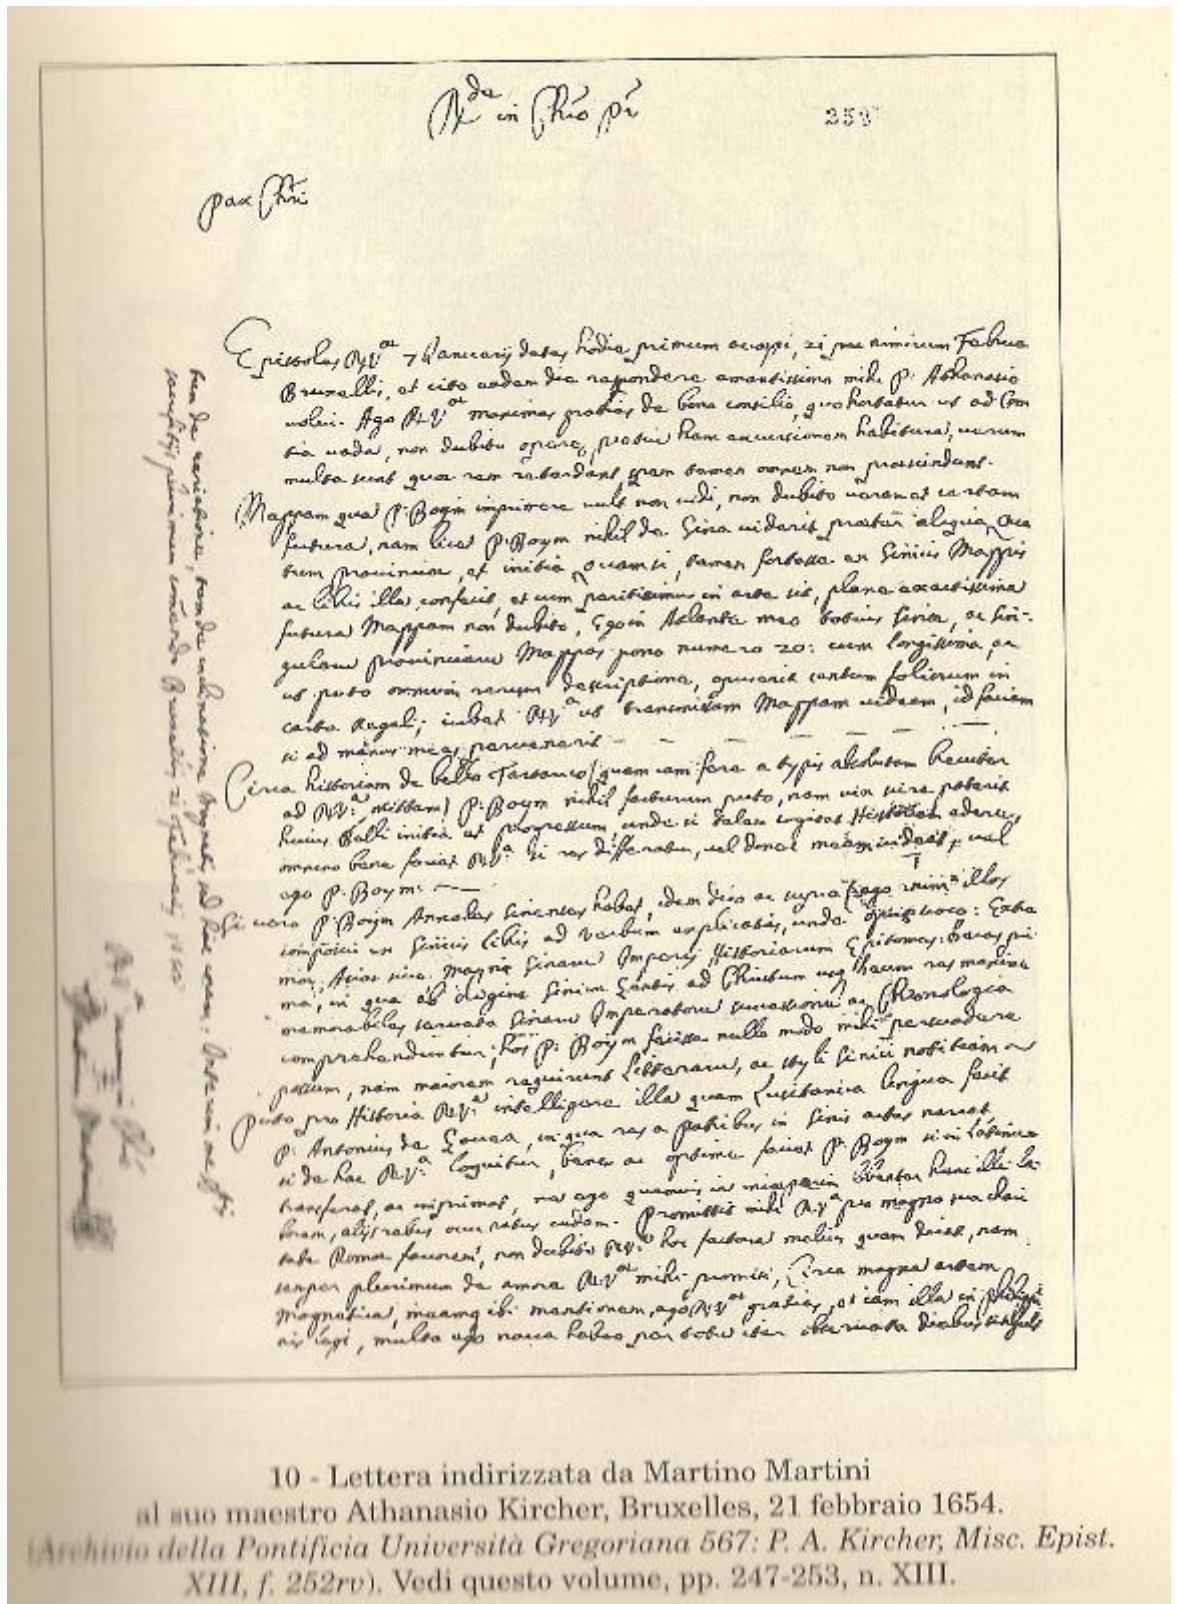 Rde in Chro Pr
259
pax Chri
Epistolas RæVæ 7 Januarij datas hodie primum accepi, 21 nimirum Febru
Bruxellis, et cito eadem die respondere amantissimo mihi P. Athanasio
volui. Ago RæVæ maximas gratias de bono consilio, quo hortatur ut ad Com
tia vada, non dubito opere pretiu hanc excursionem habitura, verum
multa sunt quae rem retardant, spem tamen omnem non praescindunt.
Mappam qua P. Boym imprimere vult non vidi, non dubito veram et certam
futura, nam licet P. Boym nihil de Sina viderit praeter aliqua Qua
trum provinciae, et initia Quamsi, tamen fortasse ex Sinicis Mappis
ac libris illa confecit, et cum peritissimus in arte sit, plane exactissima
futura Mappam non dubito, Ego in Atlante meo totius Sinae, ac sin-
gularu provinciaru Mappas pono numero 20: cum longissima, ac
ut puto omnium rerum descriptione, centum foliorum in
carta Regali; iubet RæVæ ut transmissam Mappam videam, id faciam
si ad manus meas pervenerit
Circa historiam de bello Tartarico (quam iam fere a typis absolutam breviter
ad RæVæ mittam) P. Boym nihil facturum puto, nam vix scire poterit
huius belli initia et progressum, unde si talem cogitat Historiam edere,
omnino bene faciet RæVæ si res differatur, vel donec meam videat, vel
ego P. Boymi
Si vero P. Boym Annales Sinenses habet, idem dico ac supra (ego enim illos
composui ex Sinicis libris ad verbum explicatis, unde
mox, sive Magni Sinaru Imperij Historiarum Epitomes. Decas pri
ma, in qua ab origine Sinicae Gentis ad Christum usque natum res maxime
memorabiles servata Sinaru Imperatoru successione ac Chronologia
comprehenduntur; hos P. Boym fecisse nullo modo mihi persuadere
possum, nam maiorem requirunt litteraru, ac styli Sinici notitiam
puto pro Historia RæVæ intelligere illa quam Lusitanica lingua fecit
P. Antonius de Gouvea, in qua res a patribus in Sinis actas narrat,
si de hac RæVæ loquitur, bene ac optime faciet P. Boym si in latinum
transferat, ac imprimat, ne ego quamvis hunc illi la-
borem, alijs rebus cudam. Promissis mihi RæVæ pro magno suo
Romae favorem, non dubito RæVæ hoc factura melius quam dicit, nam
semper plurimum de amore RæVæ mihi promisi, Circa magna artem
Magnetica, meamq ibi mentionem, ago RæVæ gratias, et iam illa in
nis legi, multa ego nova habeo per totu iter observata diebus singulis
tum de variatione, tum de inclinatione Magnetis sed hic Interim
sacrificijs plurimum comendo Bruxellis 21 Februarij 1654
10 - Lettera indirizzata da Martino Martini
al suo maestro Athanasio Kircher, Bruxelles, 21 febbraio 1654.
(Archivio della Pontificia Università Gregoriana 567: P. A. Kircher, Misc. Epist.
XIII, f. 252rv). Vedi questo volume, pp. 247-253, n. XIII.